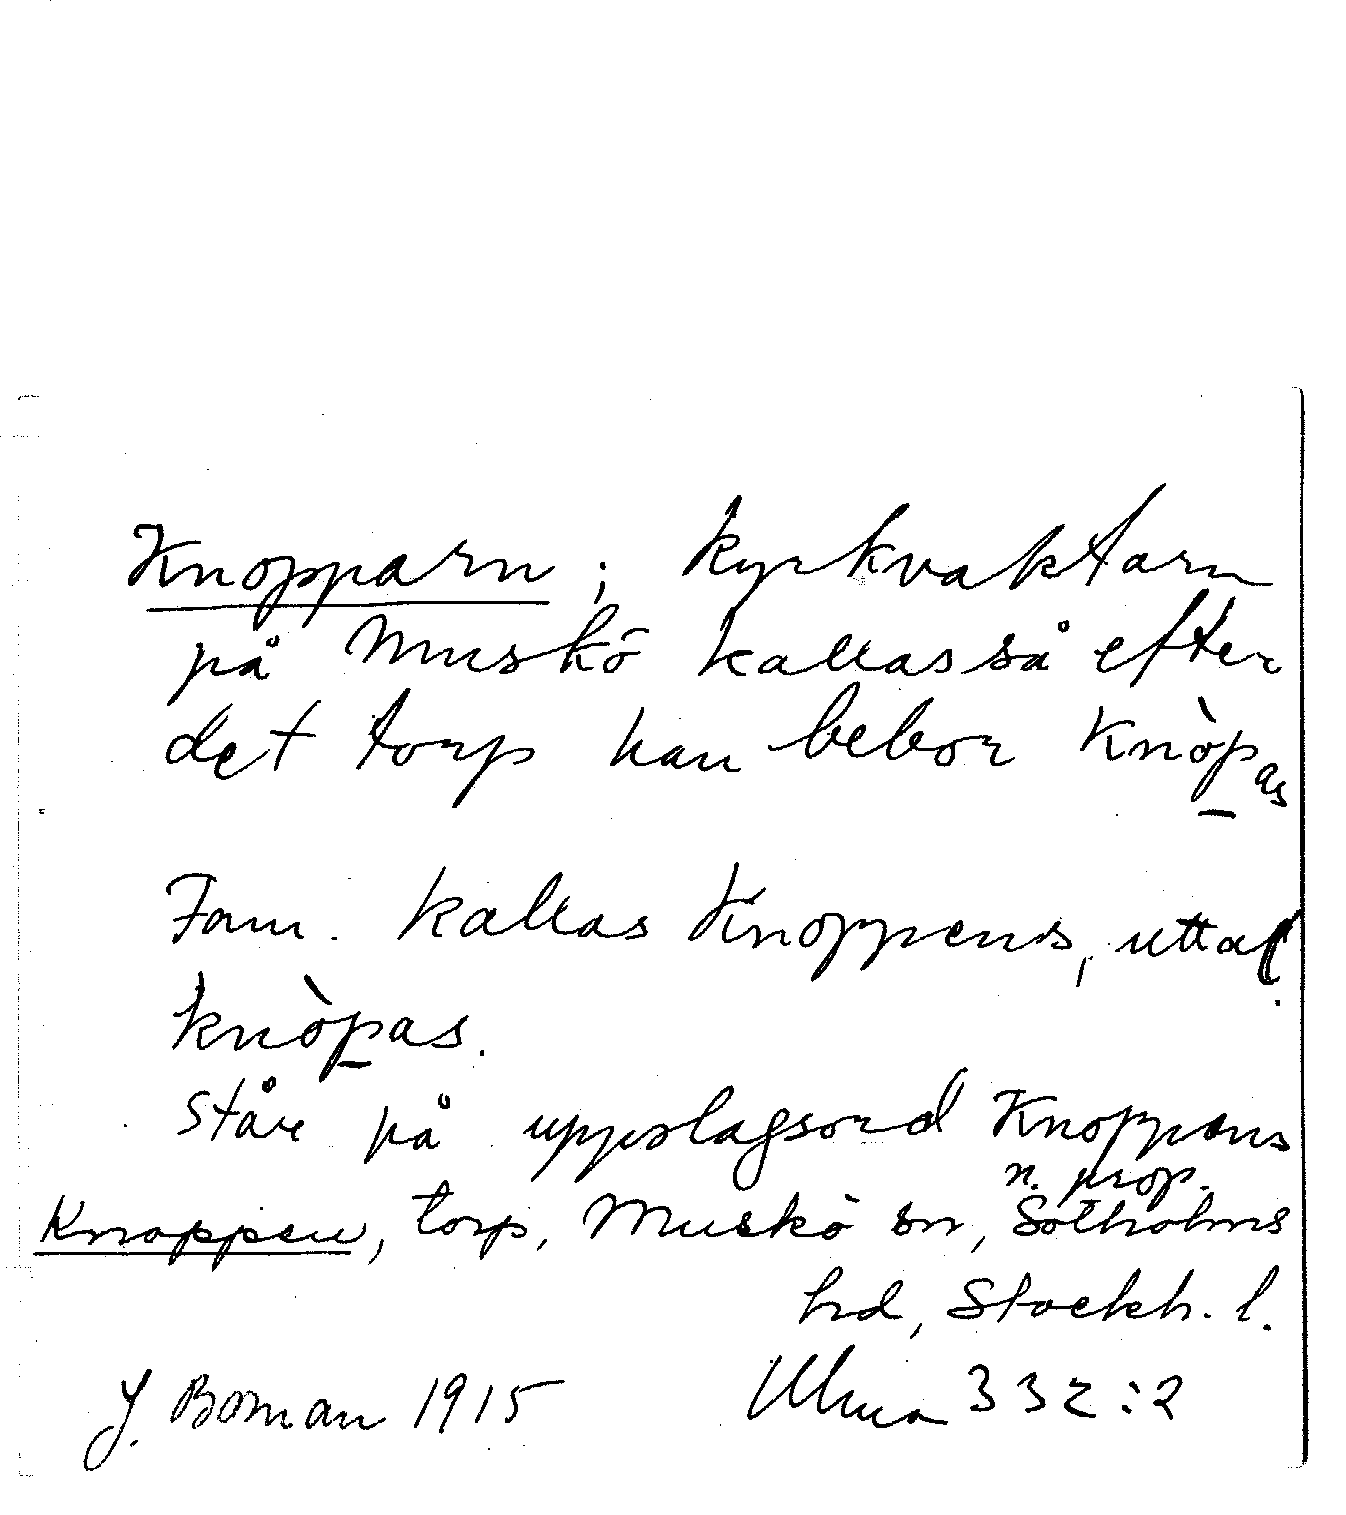 Knopparn; kyrkvaktarn
på Muskö kallas så efter
det torp han bebor Knòp̱as
Fam. kallas Knoppens, uttal.
knòp̱as.
står på uppslagsord Knoppens
n. prop.
Knoppen, torp, Muskö sn, Sotholms
hd, Stockh. l.
J. Boman 1915 Ulma 332:2